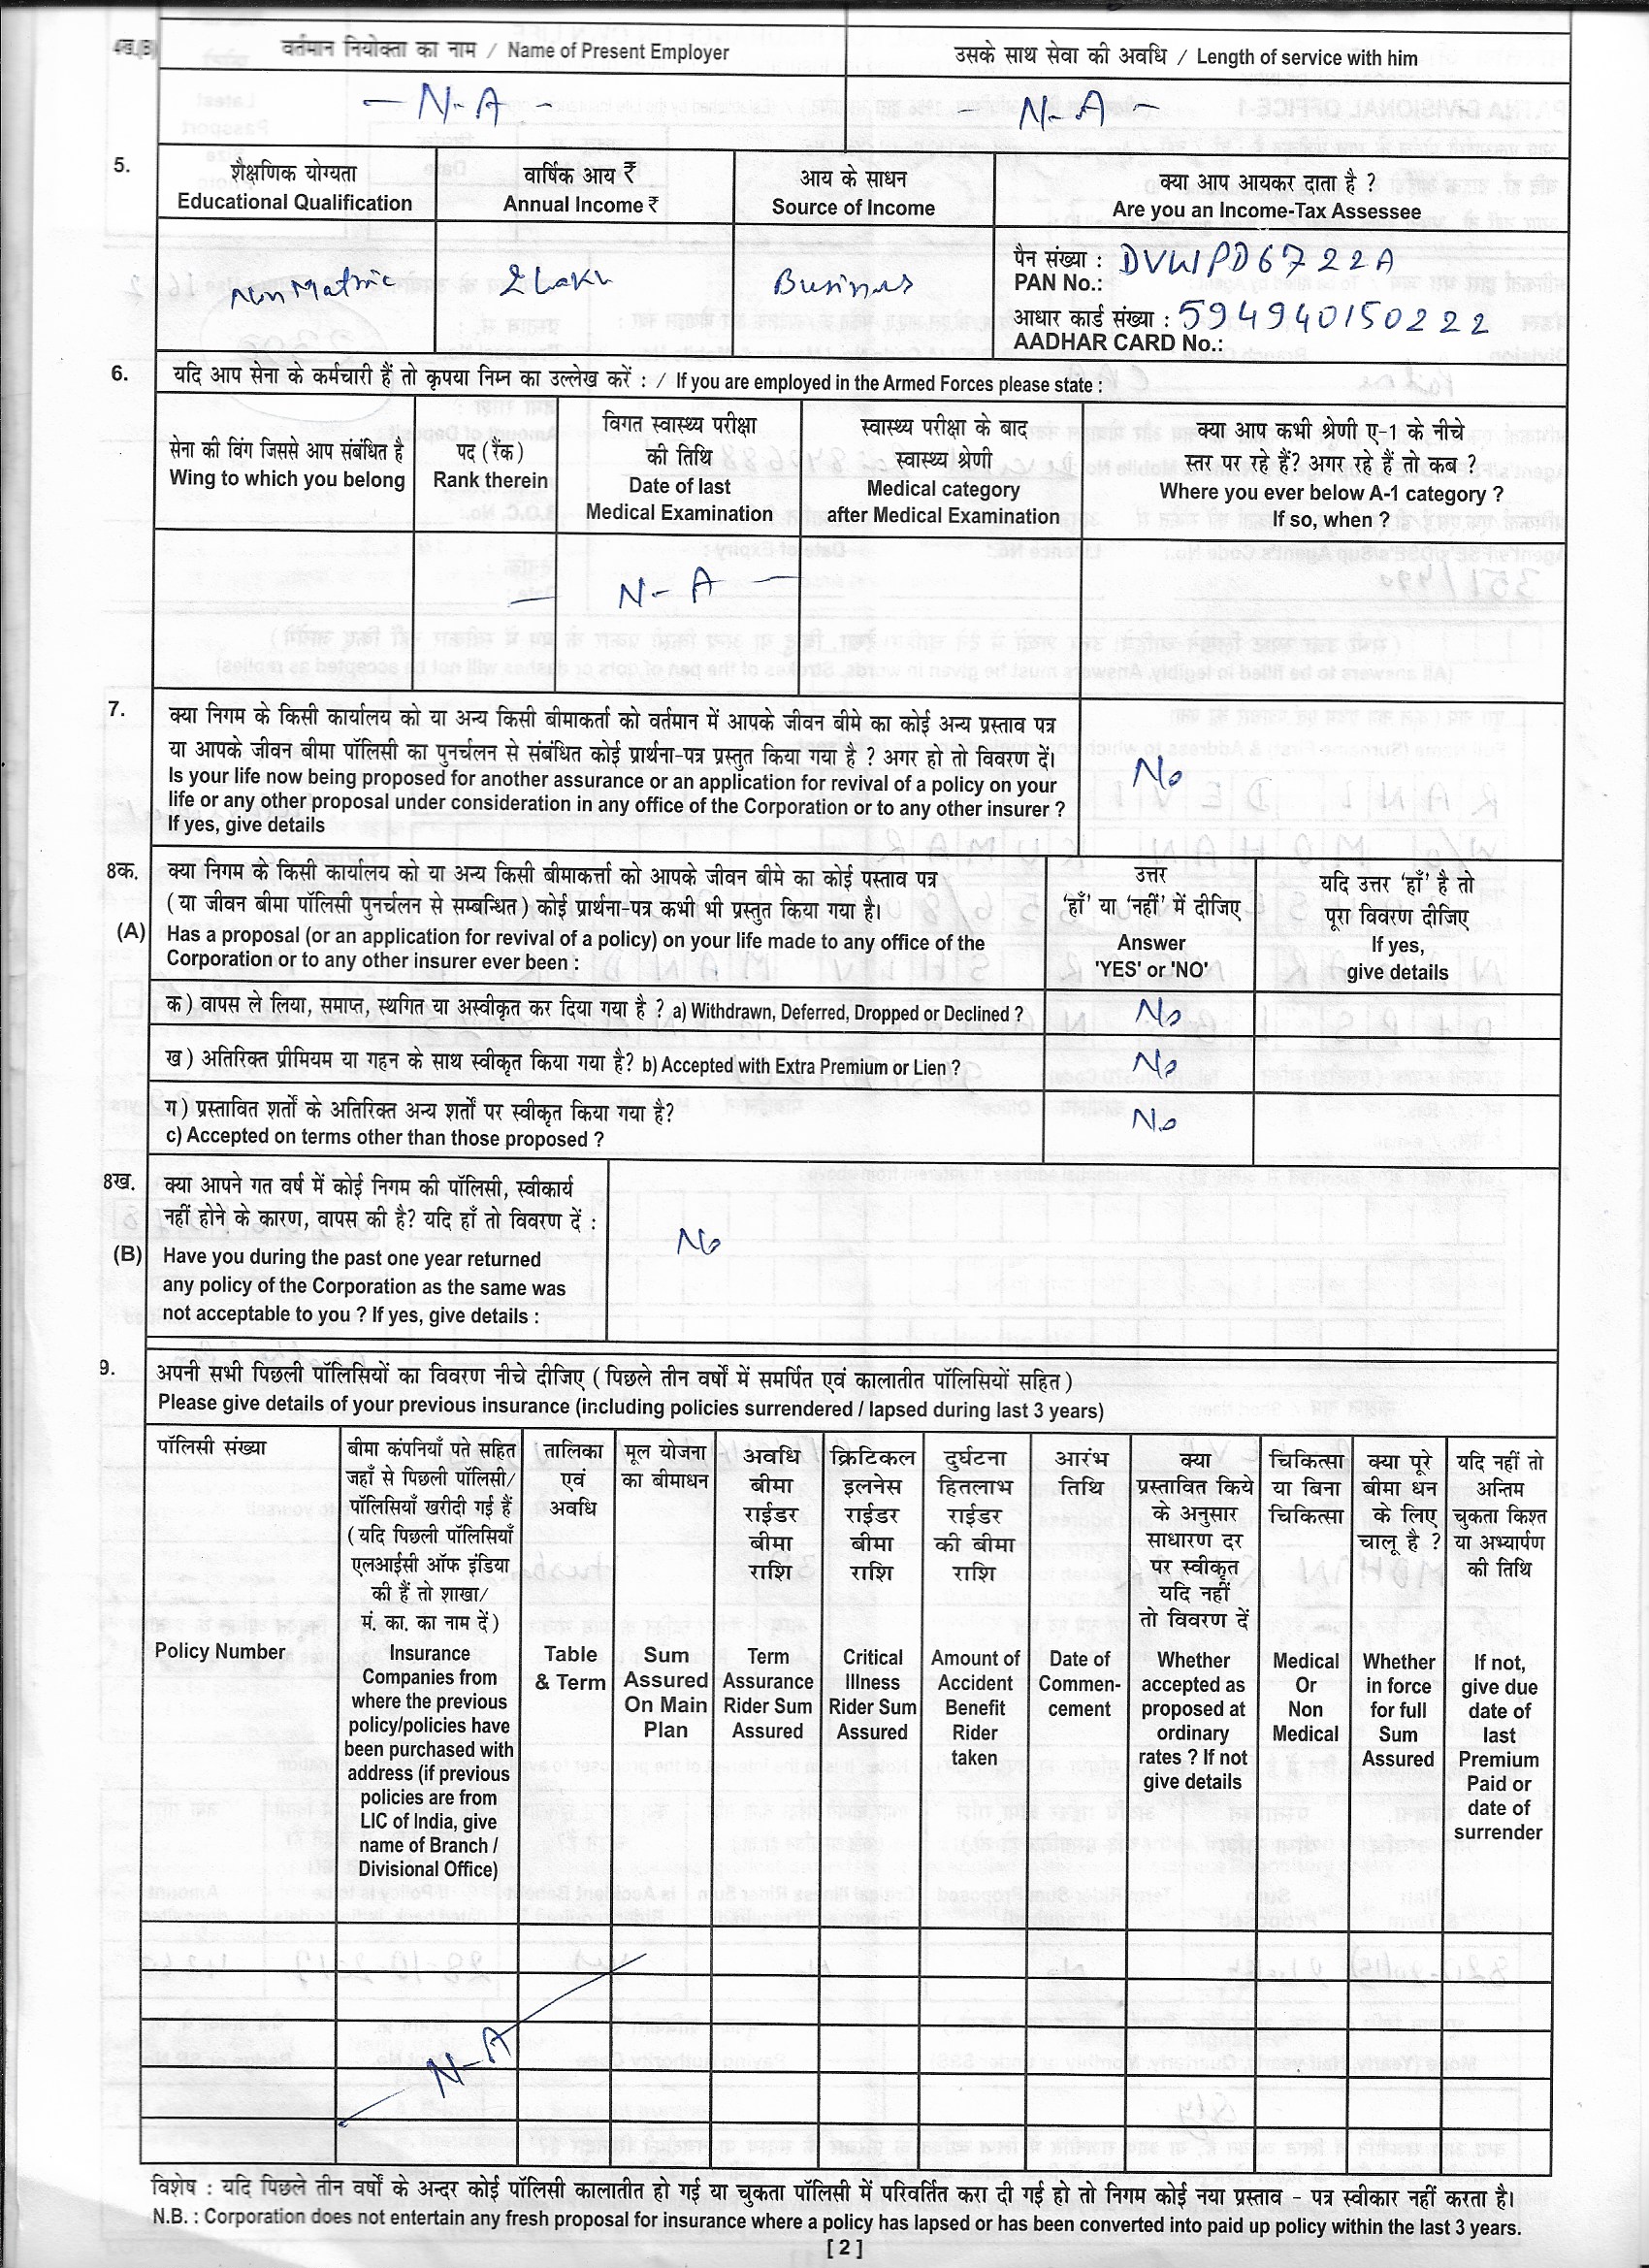 4ख.(B)
वर्तमान नियोक्ता का नाम / Name of Present Employer
उसके साथ सेवा की अवधि / Length of service with him
— N-A -
- N-A -
5.
शैक्षणिक योग्यता
Educational Qualification
वार्षिक आय ₹
Annual Income ₹
आय के साधन
Source of Income
क्या आप आयकर दाता है ?
Are you an Income-Tax Assessee
Non Matric
2 Lakh
Business
पैन संख्या : DVWPD6722A
PAN No.:
आधार कार्ड संख्या : 594940150222
AADHAR CARD No.:
6.
यदि आप सेना के कर्मचारी हैं तो कृपया निम्न का उल्लेख करें : / If you are employed in the Armed Forces please state :
सेना की विंग जिससे आप संबंधित है
Wing to which you belong
पद (रैंक)
Rank therein
विगत स्वास्थ्य परीक्षा
की तिथि
Date of last
Medical Examination
स्वास्थ्य परीक्षा के बाद
स्वास्थ्य श्रेणी
Medical category
after Medical Examination
क्या आप कभी श्रेणी ए-1 के नीचे
स्तर पर रहे हैं? अगर रहे हैं तो कब ?
Where you ever below A-1 category ?
If so, when ?
— N-A —
7.
क्या निगम के किसी कार्यालय को या अन्य किसी बीमाकर्ता को वर्तमान में आपके जीवन बीमे का कोई अन्य प्रस्ताव पत्र
या आपके जीवन बीमा पॉलिसी का पुनर्चलन से संबंधित कोई प्रार्थना-पत्र प्रस्तुत किया गया है ? अगर हो तो विवरण दें।
Is your life now being proposed for another assurance or an application for revival of a policy on your
life or any other proposal under consideration in any office of the Corporation or to any other insurer ?
If yes, give details
No
8क.
(A)
क्या निगम के किसी कार्यालय को या अन्य किसी बीमाकर्त्ता को आपके जीवन बीमे का कोई पस्ताव पत्र
(या जीवन बीमा पॉलिसी पुनर्चलन से सम्बन्धित) कोई प्रार्थना-पत्र कभी भी प्रस्तुत किया गया है।
Has a proposal (or an application for revival of a policy) on your life made to any office of the
Corporation or to any other insurer ever been :
उत्तर
'हाँ' या 'नहीं' में दीजिए
Answer
'YES' or 'NO'
यदि उत्तर 'हाँ' है तो
पूरा विवरण दीजिए
If yes,
give details
क) वापस ले लिया, समाप्त, स्थगित या अस्वीकृत कर दिया गया है ? a) Withdrawn, Deferred, Dropped or Declined ?
No
ख) अतिरिक्त प्रीमियम या गहन के साथ स्वीकृत किया गया है? b) Accepted with Extra Premium or Lien ?
No
ग) प्रस्तावित शर्तों के अतिरिक्त अन्य शर्तों पर स्वीकृत किया गया है?
c) Accepted on terms other than those proposed ?
No
8ख.
(B)
क्या आपने गत वर्ष में कोई निगम की पॉलिसी, स्वीकार्य
नहीं होने के कारण, वापस की है? यदि हाँ तो विवरण दें :
Have you during the past one year returned
any policy of the Corporation as the same was
not acceptable to you ? If yes, give details :
No
9.
अपनी सभी पिछली पॉलिसियों का विवरण नीचे दीजिए (पिछले तीन वर्षों में समर्पित एवं कालातीत पॉलिसियों सहित)
Please give details of your previous insurance (including policies surrendered / lapsed during last 3 years)
पॉलिसी संख्या
Policy Number
बीमा कंपनियाँ पते सहित
जहाँ से पिछली पॉलिसी/
पॉलिसियाँ खरीदी गई हैं
(यदि पिछली पॉलिसियाँ
एलआईसी ऑफ इंडिया
की हैं तो शाखा/
मं. का. का नाम दें)
Insurance
Companies from
where the previous
policy/policies have
been purchased with
address (if previous
policies are from
LIC of India, give
name of Branch /
Divisional Office)
तालिका
एवं
अवधि
Table
& Term
मूल योजना
का बीमाधन
Sum
Assured
On Main
Plan
अवधि
बीमा
राईडर
बीमा
राशि
Term
Assurance
Rider Sum
Assured
क्रिटिकल
इलनेस
राईडर
बीमा
राशि
Critical
Illness
Rider Sum
Assured
दुर्घटना
हितलाभ
राईडर
की बीमा
राशि
Amount of
Accident
Benefit
Rider
taken
आरंभ
तिथि
Date of
Commen-
cement
क्या
प्रस्तावित किये
के अनुसार
साधारण दर
पर स्वीकृत
यदि नहीं
तो विवरण दें
Whether
accepted as
proposed at
ordinary
rates ? If not
give details
चिकित्सा
या बिना
चिकित्सा
Medical
Or
Non
Medical
क्या पूरे
बीमा धन
के लिए
चालू है ?
Whether
in force
for full
Sum
Assured
यदि नहीं तो
अन्तिम
चुकता किश्त
या अभ्यार्पण
की तिथि
If not,
give due
date of
last
Premium
Paid or
date of
surrender
N-A
विशेष : यदि पिछले तीन वर्षों के अन्दर कोई पॉलिसी कालातीत हो गई या चुकता पॉलिसी में परिवर्तित करा दी गई हो तो निगम कोई नया प्रस्ताव - पत्र स्वीकार नहीं करता है।
N.B. : Corporation does not entertain any fresh proposal for insurance where a policy has lapsed or has been converted into paid up policy within the last 3 years.
[ 2 ]